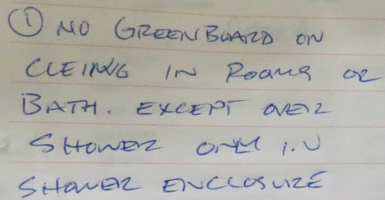 ① NO GREENBOARD ON
CLEIING IN ROOMS OR
BATH. EXCEPT OVER
SHOWER ONLY IN
SHOWER ENCLOSURE